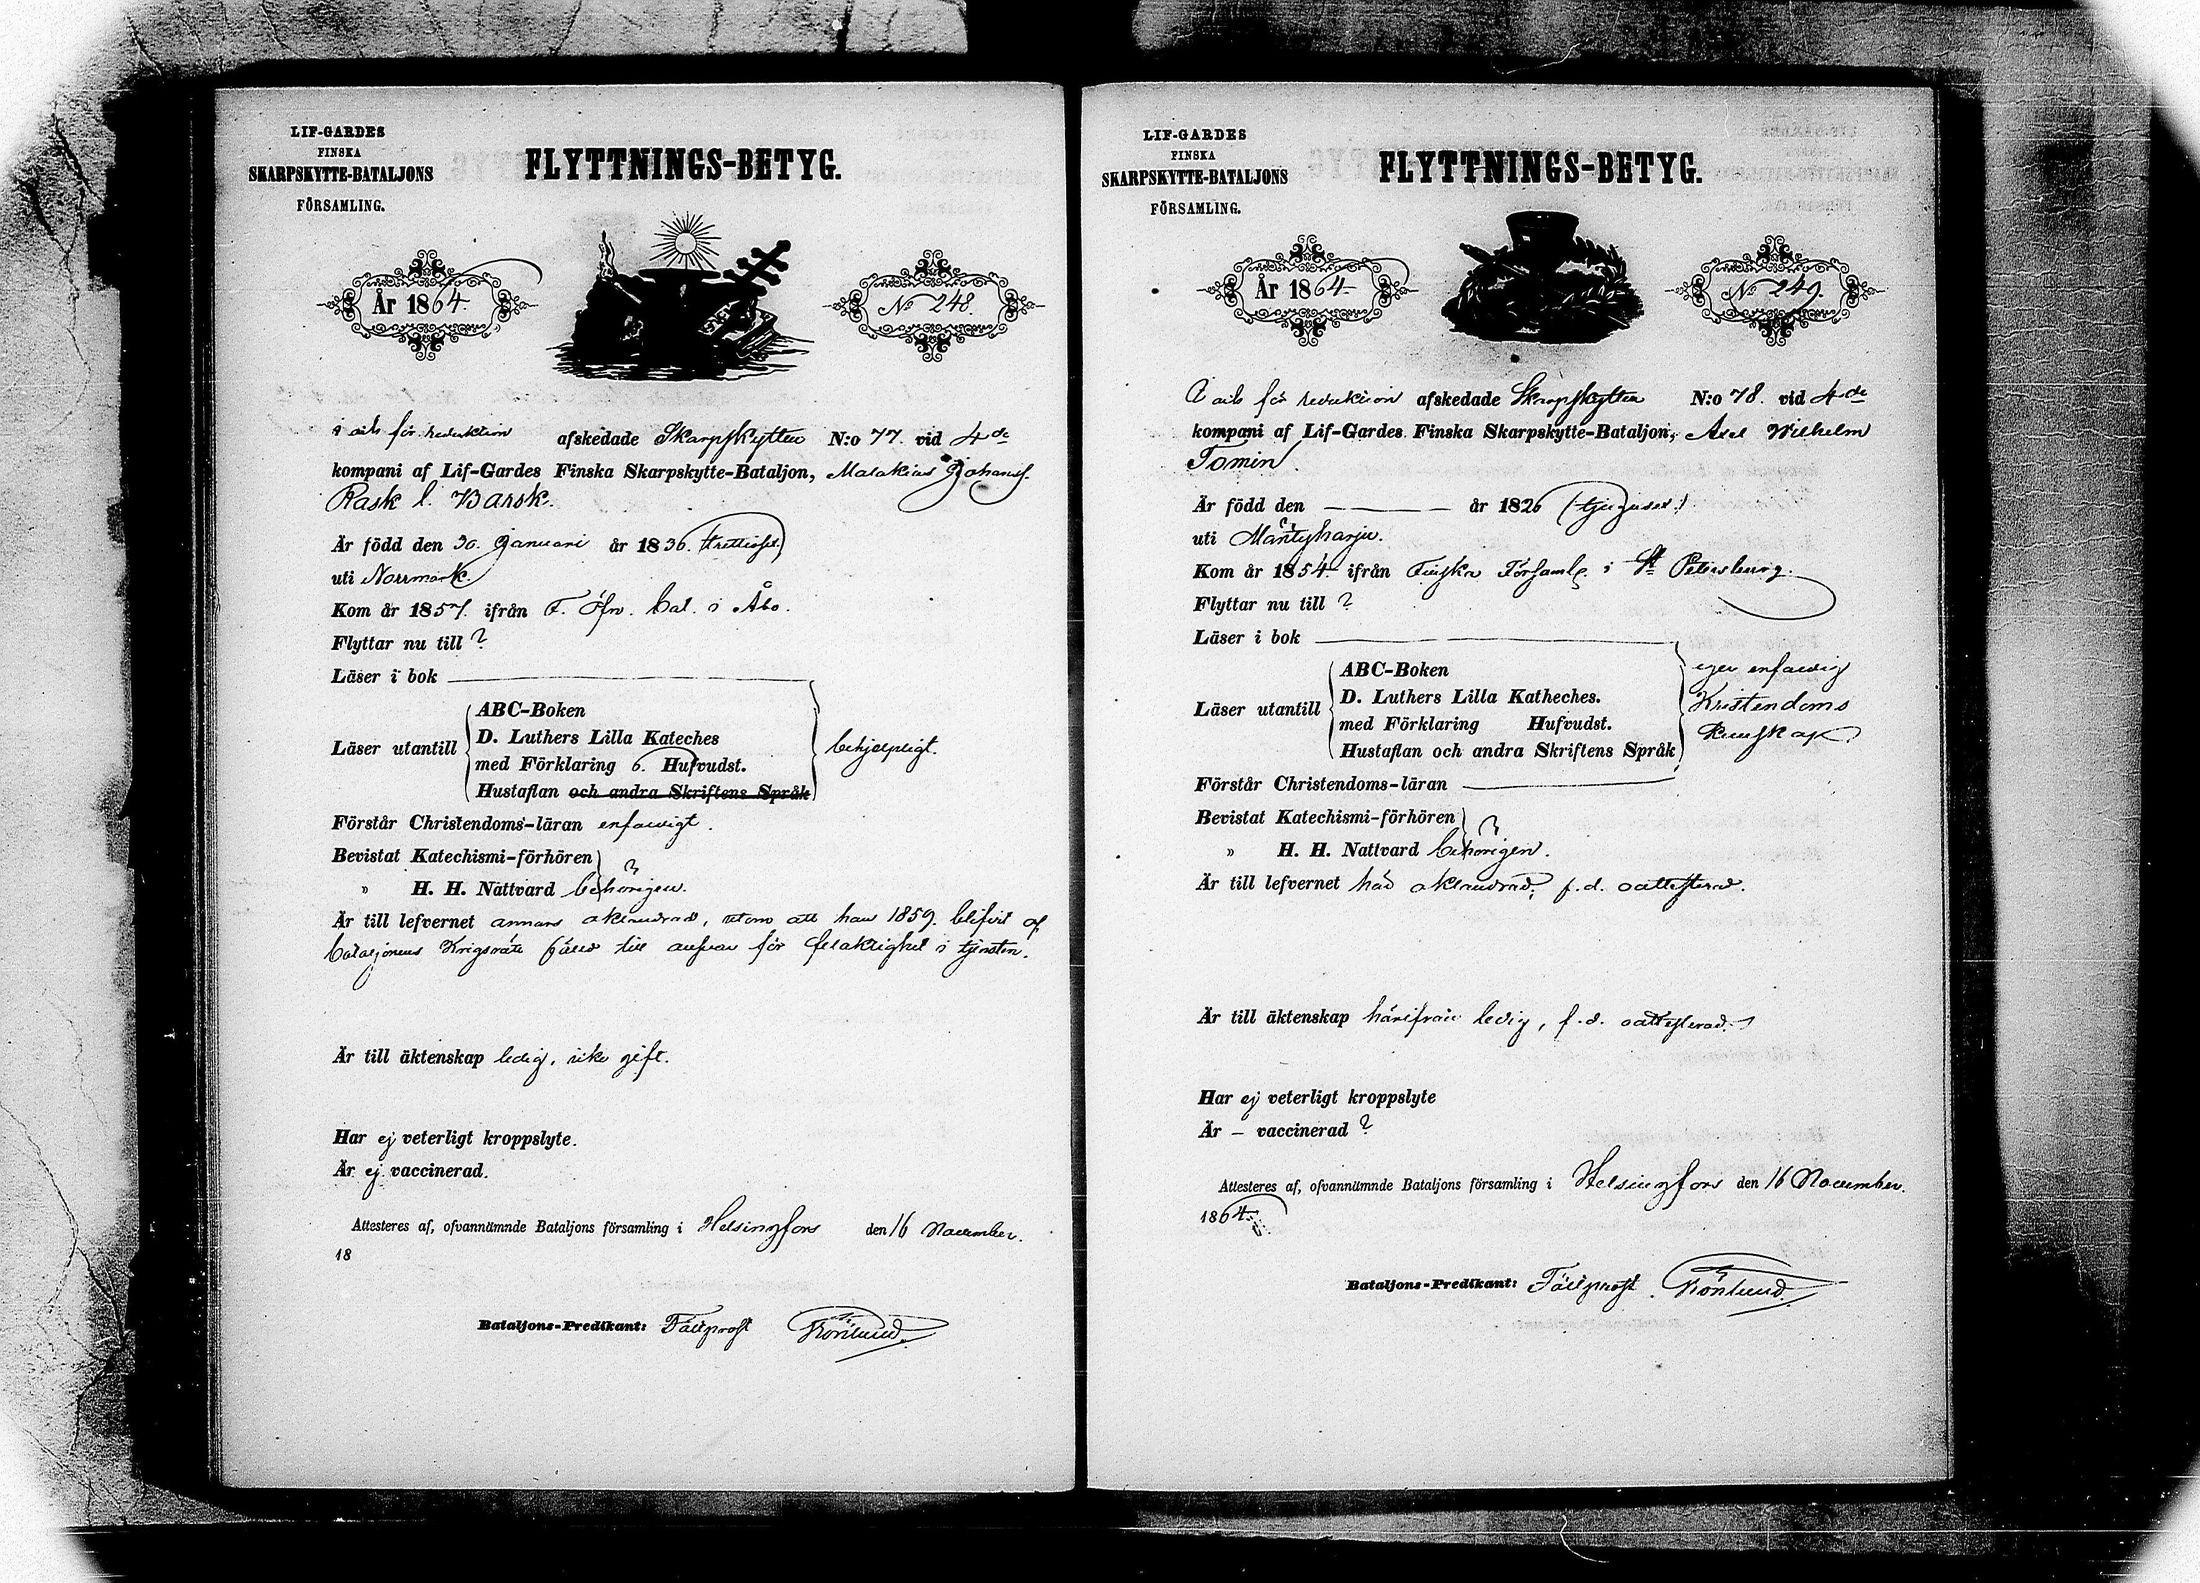 LIF-GARDES
FINSKA
SKARPSKYTTE-BATALJONS
FÖRSAMLING.
FLYTTNINGS-BETYG.
År 1864.
No 248.
för reduktion afskedade Skarpskytten N:o 77. vid 4de
kompani af Lif-Gardes Finska Skarpskytte-Bataljon, Malakias Johanss.
Rask l. Barsk.
Är född den 30. Januari år 1836. (trettiosex)
uti Norrmark.
Kom år 1857. ifrån F. Öfn. bat. i Åbo.
Flyttar nu till ?
Läser i bok
Läser utantill
ABC-Boken
D. Luthers Lilla Kateches
med Förklaring 6. Hufvudst.
Hustaflan och andra Skriftens Språk
behjelpligt.
Förstår Christendoms-läran enfaldigt.
Bevistat Katechismi-förhören ?
" H. H. Nattvard behörigen.
Är till lefvernet annars oklandrad, utom att han 1859. blifvit af
bataljonens Krigsrätt fälld till ansvar för felaktighet i tjensten.
Är till äktenskap ledig, icke gift.
Har ej veterligt kroppslyte.
Är ej vaccinerad.
Attesteres af, ofvannämnde Bataljons församling i Helsingfors den 16 November.
18
Bataljons-Predikant: Fältprost Frönlund.
LIF-GARDES
FINSKA
SKARPSKYTTE-BATALJONS
FÖRSAMLING.
FLYTTNINGS-BETYG.
År 1864.
No 249.
för reduktion afskedade Skarpskytten N:o 78. vid 4de
kompani af Lif-Gardes Finska Skarpskytte-Bataljon, Axel Wilhelm
Tomin.
Är född den år 1826 (tjugusex)
uti Mäntyharju.
Kom år 1854. ifrån Finska Församl. i St Petersburg.
Flyttar nu till ?
Läser i bok
Läser utantill
ABC-Boken
D. Luthers Lilla Katheches.
med Förklaring Hufvudst.
Hustaflan och andra Skriftens Språk
eger enfaldig
Kristendoms
Kunskap.
Förstår Christendoms-läran
Bevistat Katechismi-förhören ?
" H. H. Nattvard behörigen.
Är till lefvernet här oklandrad, f. d. oattesterad.
Är till äktenskap härifrån ledig, f. d. oattesterad.
Har ej veterligt kroppslyte
Är – vaccinerad ?
Attesteres af, ofvannämnde Bataljons församling i Helsingfors den 16 November.
1864.
Bataljons-Predikant: Fältprost Frönlund.